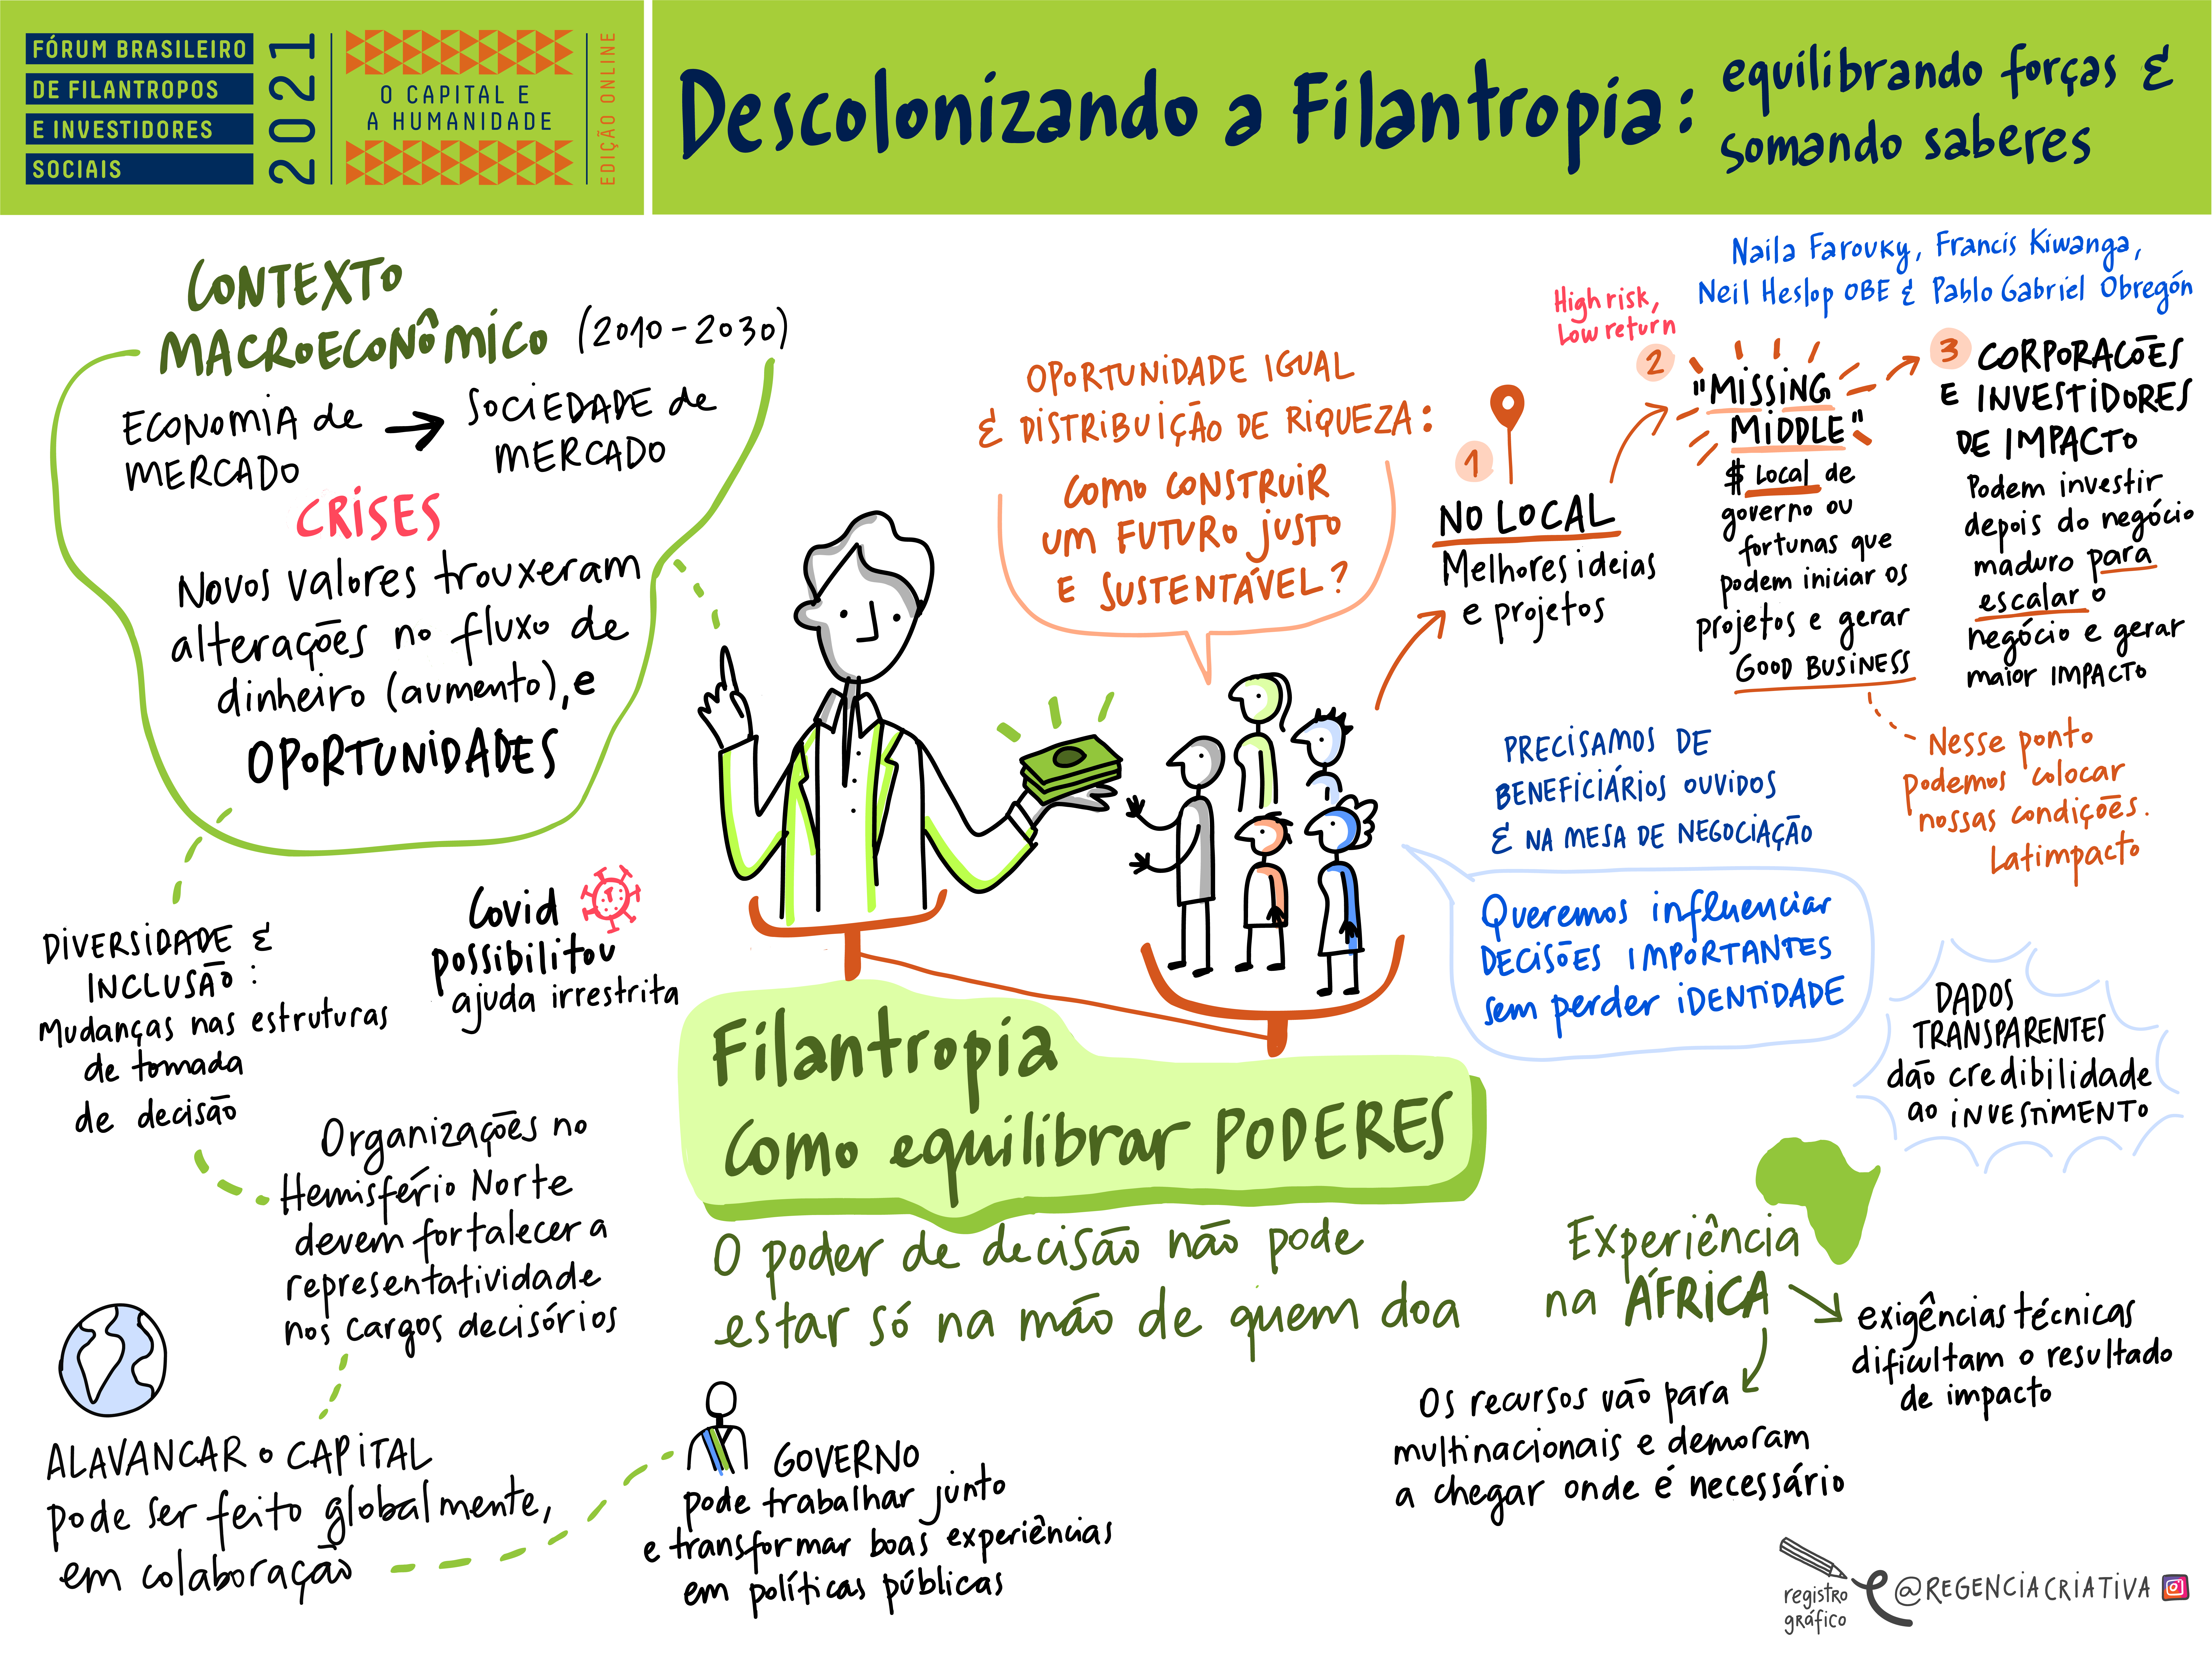 FÓRUM BRASILEIRO
DE FILANTROPOS
E INVESTIDORES
SOCIAIS
2021
O CAPITAL E
A HUMANIDADE
EDIÇÃO ONLINE
Descolonizando a Filantropia:
equilibrando forças &
somando saberes
Naila Farouky, Francis Kiwanga,
Neil Heslop OBE & Pablo Gabriel Obregón
CONTEXTO
MACROECONÔMICO (2010-2030)
ECONOMIA de
MERCADO
SOCIEDADE de
MERCADO
CRISES
Novos valores trouxeram
alterações no fluxo de
dinheiro (aumento), e
OPORTUNIDADES
DIVERSIDADE &
INCLUSÃO:
Mudanças nas estruturas
de tomada
de decisão
Covid
possibilitou
ajuda irrestrita
Organizações no
Hemisfério Norte
devem fortalecer a
representatividade
nos cargos decisórios
ALAVANCAR o CAPITAL
pode ser feito globalmente,
em colaboração
GOVERNO
pode trabalhar junto
e transformar boas experiências
em políticas públicas
OPORTUNIDADE IGUAL
& DISTRIBUIÇÃO DE RIQUEZA:
COMO CONSTRUIR
UM FUTURO JUSTO
E SUSTENTÁVEL?
Filantropia
Como equilibrar PODERES
O poder de decisão não pode
estar só na mão de quem doa
1
NO LOCAL
Melhores ideias
e projetos
High risk,
Low return
2
"MISSING
MIDDLE"
$ Local de
governo ou
fortunas que
podem iniciar os
projetos e gerar
GOOD BUSINESS
3
CORPORACÕES
E INVESTIDORES
DE IMPACTO
Podem investir
depois do negócio
maduro para
escalar o
negócio e gerar
maior IMPACTO
Nesse ponto
podemos colocar
nossas condições.
Latimpacto
PRECISAMOS DE
BENEFICIÁRIOS OUVIDOS
& NA MESA DE NEGOCIAÇÃO
Queremos influenciar
DECISÕES IMPORTANTES
sem perder IDENTIDADE
DADOS
TRANSPARENTES
dão credibilidade
ao INVESTIMENTO
Experiência
na ÁFRICA
exigências técnicas
dificultam o resultado
de impacto
Os recursos vão para
multinacionais e demoram
a chegar onde é necessário
registro
gráfico
@REGENCIACRIATIVA